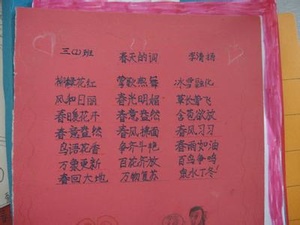 三(2)班 春天的词
柳绿花红 莺歌燕舞 冰雪融化
风和日丽 春光明媚 草长莺飞
春暖花开 春意盎然 含苞欲放
春意盎然 春风拂面 春风习习
鸟语花香 争奇斗艳 春雨如油
万象更新 百花齐放 百鸟争鸣
春回大地 万物复苏 泉水丁冬